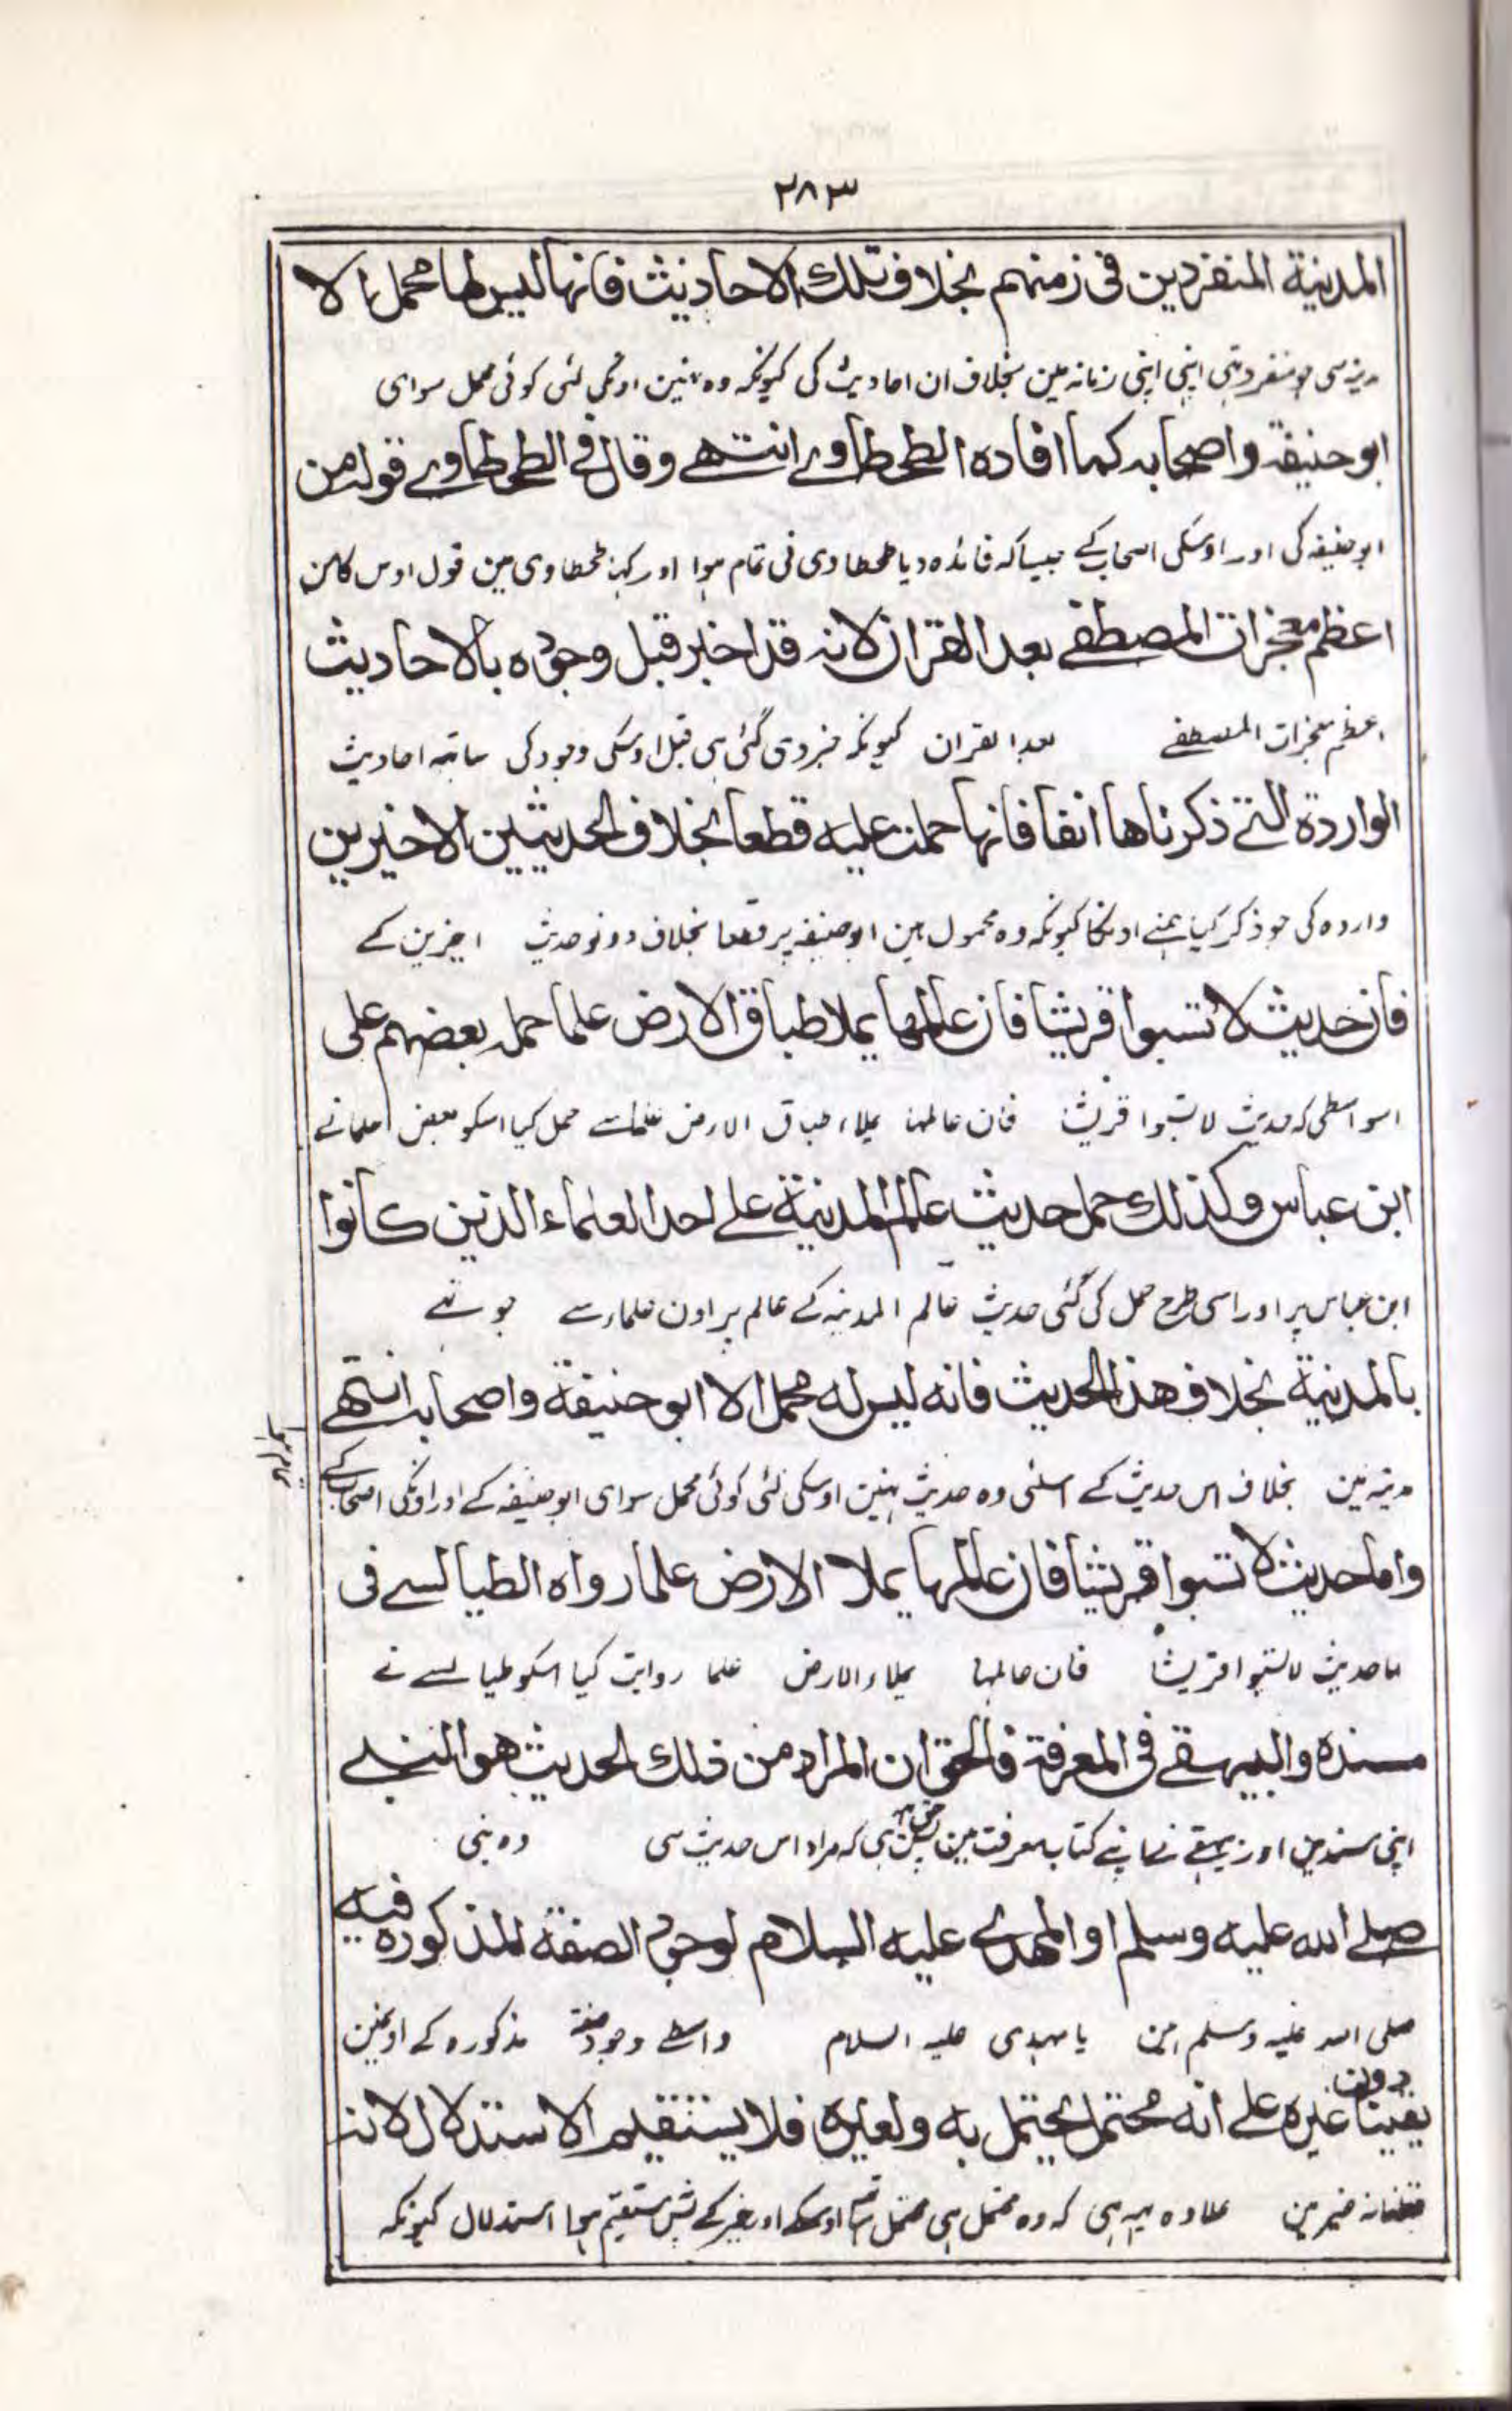 ۲۸۳
المدنية المنفردين فى زمنهم بخلاف تلك الاحاديث فانها ليس لها محمل الا
مدینہ سی جو منفرد تہی اپنی اپنی زمانہ مین بخلاف ان احادیث کی کیونکہ وہ نہین اونکی لئی کوئی محمل سوای
ابو حنيفة واصحابه كما افاده الطحطاوے انتهے وقال فے الطحطاوے قوله من
ابو حنیفہ کی اور اوسکی اصحاب کے جیسا کہ فائدہ دیا طحطاوی نی تمام ہوا اور کہا طحطاوی مین قول اوس کا من
اعظم معجزات المصطفے بعد القران لانه قد اخبر قبل وجوده بالاحاديث
اعظم معجزات المصطفے بعد القران کیونکہ خبر دی گئی ہی قبل اوسکی وجود کی ساتھ احادیث
الواردة التے ذكرناها انفا فانها حملت عليه قطعا بخلاف الحديثين الاخيرين
واردہ کی جو ذکر کیا ہمنے اونکا کیونکہ وہ محمول ہین ابو حنیفہ پر قطعا بخلاف دونو حدیث اخیرین کے
فان حديث لا تسبوا قريشا فان عالمها يملا طباق الارض علما حمله بعضهم على
اسواسطی کہ حدیث لا تسبوا قریشا فان عالمها یملاء طباق الارض علما سے حمل کیا اسکو بعض علما نے
ابن عباس وكذلك حمل حديث عالم المدينة علے احد العلماء الذين كانوا
ابن عباس پر اور اسی طرح حمل کی گئی حدیث عالم المدینہ کے عالم پر اون علماء سے جو تہے
بالمدينة بخلاف هذا الحديث فانه ليس له محمل الا ابو حنيفة واصحابه انتهے
مدینہ مین بخلاف اس حدیث کے اسلئی وہ حدیث نہین اوسکی لئی کوئی محمل سوای ابو حنیفہ کے اور اونکی اصحاب کے
تمام ہوا
واما حديث لا تسبوا قريشا فان عالمها يملا الارض علما رواه الطيالسے فى
اما حدیث لا تسبوا قریشا فان عالمها یملاء الارض علما روایت کیا اسکو طیالسے نے
مسنده والبيهقے فى المعرفة فالحق ان المراد من ذلك الحديث هو النبے
اپنی مسند مین اور بیہقے نے اپنے کتاب معرفت مین پس حق یہ ہی کہ مراد اس حدیث سی وہ نبی
صلے الله عليه وسلم او المهدے عليه السلام لوجود الصفة المذكوره فيه
صلی اللہ علیہ وسلم ہین یا مہدی علیہ السلام واسطے وجود صفتہ مذکورہ کے اونمین
يقينا دون غيره علے انه محتمل يحتمل به ولغيره فلا يستقيم الاستدلال لانه
نہ غیر مین علاوہ یہہ ہی کہ وہ محتمل ہی محتمل ساتھ اوسکے اور غیر کے پس مستقیم ہوا استدلال کیونکہ